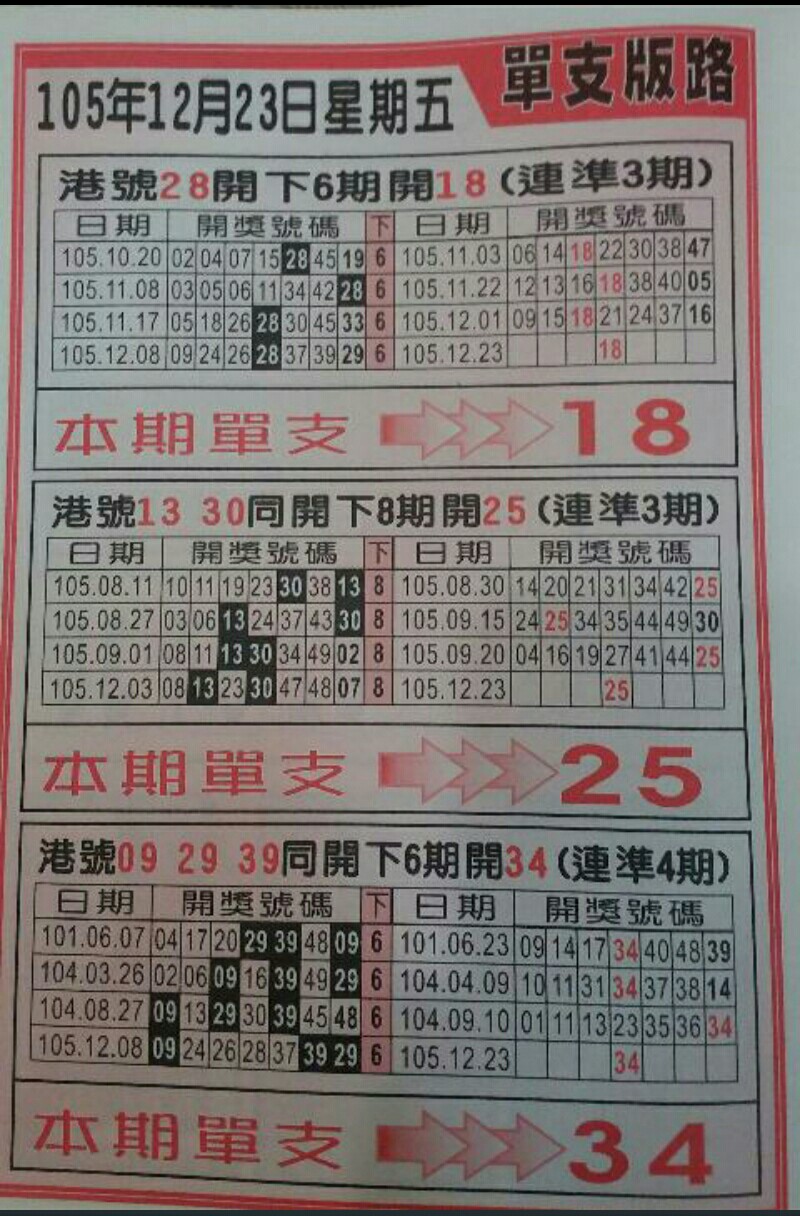 單支版路
105年12月23日星期五
港號28開下6期開18(連準3期)
日期 開獎號碼 下 日期 開獎號碼
105.10.20 02 04 07 15 28 45 19 6 105.11.03 06 14 18 22 30 38 47
105.11.08 03 05 06 11 34 42 28 6 105.11.22 12 13 16 18 38 40 05
105.11.17 05 18 26 28 30 45 33 6 105.12.01 09 15 18 21 24 37 16
105.12.08 09 24 26 28 37 39 29 6 105.12.23 18
本期單支 18
港號13 30同開下8期開25(連準3期)
日期 開獎號碼 下 日期 開獎號碼
105.08.11 10 11 19 23 30 38 13 8 105.08.30 14 20 21 31 34 42 25
105.08.27 03 06 13 24 37 43 30 8 105.09.15 24 25 34 35 44 49 30
105.09.01 08 11 13 30 34 49 02 8 105.09.20 04 16 19 27 41 44 25
105.12.03 08 13 23 30 47 48 07 8 105.12.23 25
本期單支 25
港號09 29 39同開下6期開34(連準4期)
日期 開獎號碼 下 日期 開獎號碼
101.06.07 04 17 20 29 39 48 09 6 101.06.23 09 14 17 34 40 48 39
104.03.26 02 06 09 16 39 49 29 6 104.04.09 10 11 31 34 37 38 14
104.08.27 09 13 29 30 39 45 48 6 104.09.10 01 11 13 23 35 36 34
105.12.08 09 24 26 28 37 39 29 6 105.12.23 34
本期單支 34